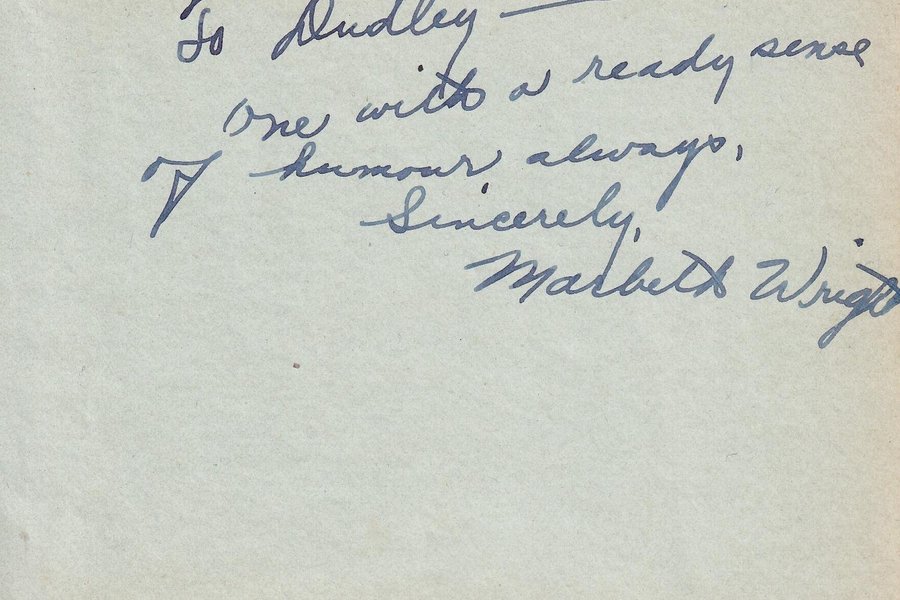 To Dudley —
One with a ready sense
of humour always,
Sincerely,
Marbeth Wright